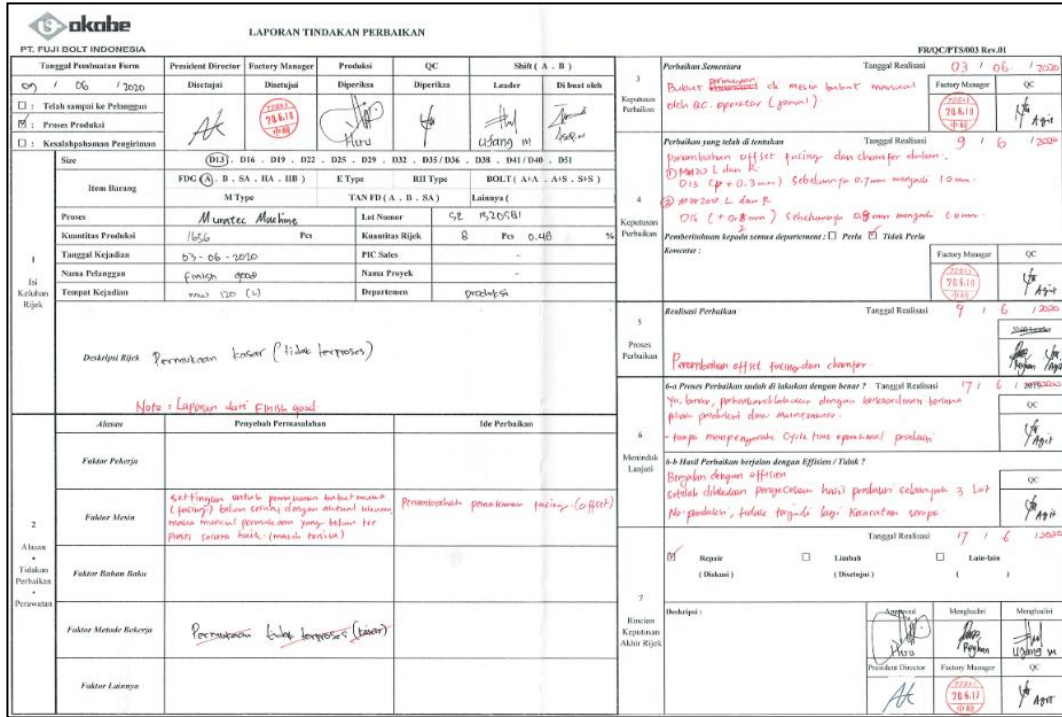 okabe
PT. FUJI BOLT INDONESIA
LAPORAN TINDAKAN PERBAIKAN
FR/QC/PTS/003 Rev.01
Tanggal Pembuatan Form
President Director
Factory Manager
Produksi
QC
Shift ( A . B )
09 / 06 / 2020
Disetujui
Disetujui
Diperiksa
Diperiksa
Leader
Di buat oleh
☐ : Telah sampai ke Pelanggan
☑ : Proses Produksi
☐ : Kesalahpahaman Pengiriman
20.6.10
Heru
Ujang M
1
Isi Keluhan Rijek
Item Barang
Size
D13 . D16 . D19 . D22 . D25 . D29 . D32 . D35 / D36 . D38 . D41 / D40 . D51
FDG (A . B . SA . HA . HB )
E Type
RII Type
BOLT ( A+A . A+S . S+S )
M Type
TAN FD ( A . B . SA )
Lainnya (
Proses
Lot Nomor
Kuantitas Produksi
1656 Pcs
Kuantitas Rijek
8 Pcs 0.48 %
Tanggal Kejadian
03 - 06 - 2020
PIC Sales
-
Nama Pelanggan
Finish good
Nama Proyek
-
Tempat Kejadian
Departemen
produksi
Deskripsi Rijek
Permukaan kasar (tidak terproses)
Note : Laporan dari Finish good
2
Alasan
•
Tindakan Perbaikan
•
Perawatan
Alasan
Penyebab Permasalahan
Ide Perbaikan
Faktor Pekerja
Faktor Mesin
(facing) belum sesuai dengan aktual
maka muncul permukaan yang belum ter
proses secara baik. (masih tersisa)
Penambahan penekanan facing (offset)
Faktor Bahan Baku
Faktor Metode Bekerja
Permukaan tidak terproses (kasar)
Faktor Lainnya
3
Keputusan Perbaikan
Perbaikan Sementara
Tanggal Realisasi
03 / 06 / 2020
Bubut permukaan di mesin bubut manual
oleh QC. operator
Factory Manager
QC
20.6.10
Agit
4
Keputusan Perbaikan
Perbaikan yang telah di tentukan
Tanggal Realisasi
9 / 6 / 2020
penambahan offset facing dan chamfer dalam.
D13 (+ 0.3 mm) sebelumnya 0.7 mm menjadi 1.0 mm.
② MW200 L dan R
sebelumnya 0.8 mm menjadi
Pemberitahuan kepada semua departement : ☐ Perlu ☑ Tidak Perlu
Komentar :
Factory Manager
QC
20.6.10
Agit
5
Proses Perbaikan
Realisasi Perbaikan
Tanggal Realisasi
9 / 6 / 2020
Penambahan offset facing dan chamfer.
Reghan
Agit
6
Menindak Lanjuti
6-a Proses Perbaikan sudah di lakukan dengan benar ?
Tanggal Realisasi
17 / 6 /
Ya, benar, perbaikan dilakukan dengan berkoordinasi bersama
pihak produksi dan Maintenance.
- tanpa mempengaruhi Cycle time operasional produksi
QC
Agit
6-b Hasil Perbaikan berjalan dengan Effisien / Tidak ?
Berjalan dengan effisien
setelah dilakukan pengecekan hasil produksi sebanyak 3 Lot
No. produksi, tidak terjadi lagi Kecacatan serupa.
QC
Agit
Tanggal Realisasi
17 / 6 / 2020
7
Rincian Keputusan Akhir Rijek
☑ Repair
☐ Limbah
☐ Lain-lain
( Diskusi )
( Disetujui )
( )
Deskripsi :
Approved
Menghadiri
Menghadiri
Heru
Reghan
Ujang M
President Director
Factory Manager
QC
20.6.17
Agit